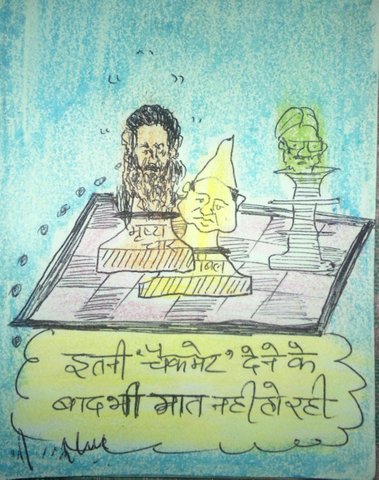 बिल
इतनी "चैकमेट" देने के
बाद भी मात नही हो रही